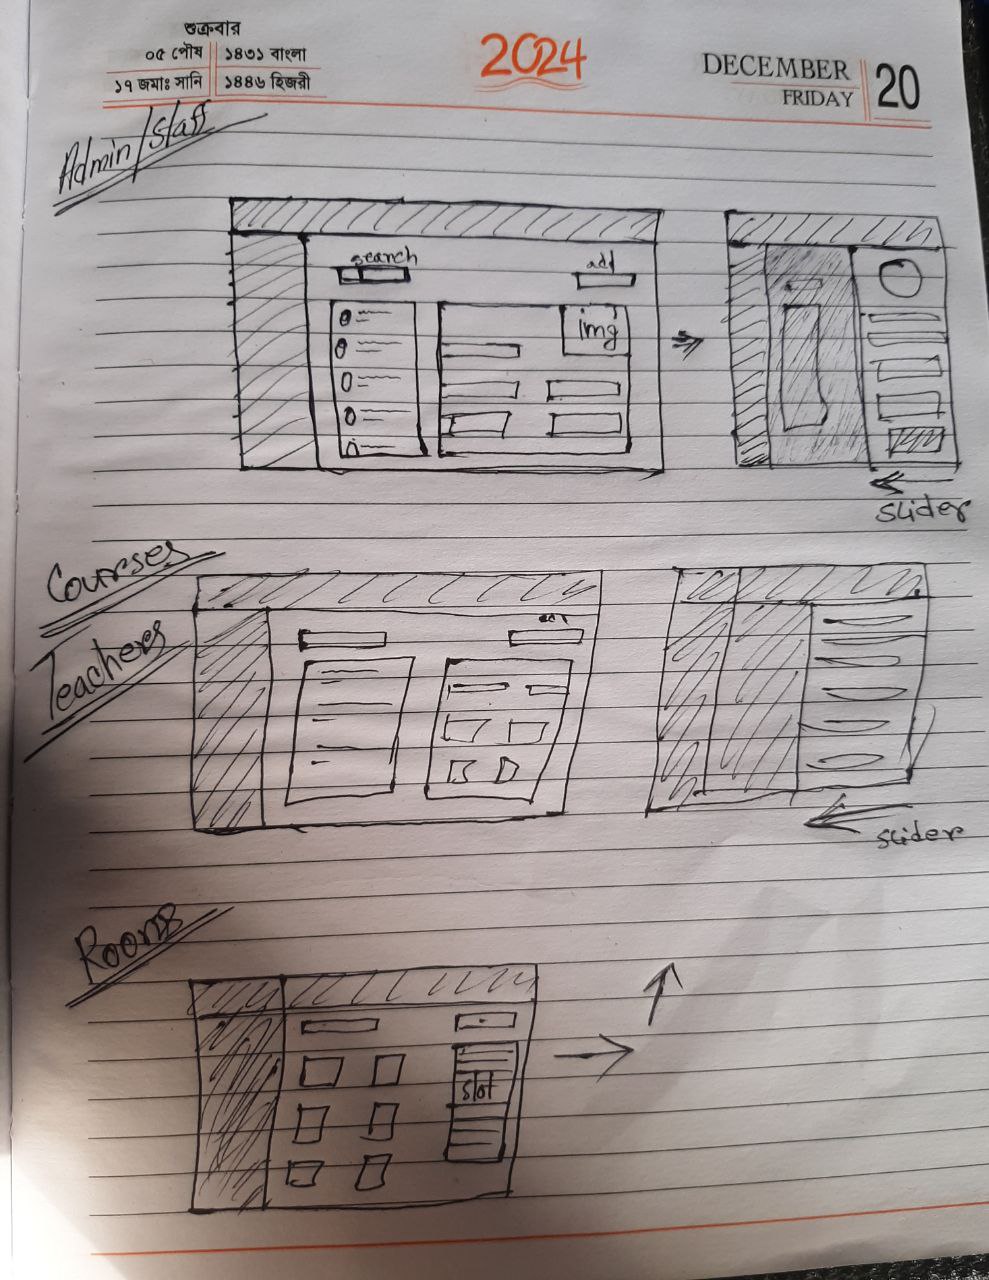 শুক্রবার
০৫ পৌষ ১৪৩১ বাংলা
১৭ জমাঃ সানি ১৪৪৬ হিজরী
2024
DECEMBER
FRIDAY
20
Admin/Staff
search
add
img
slider
Courses
Teachers
slider
Rooms
slot